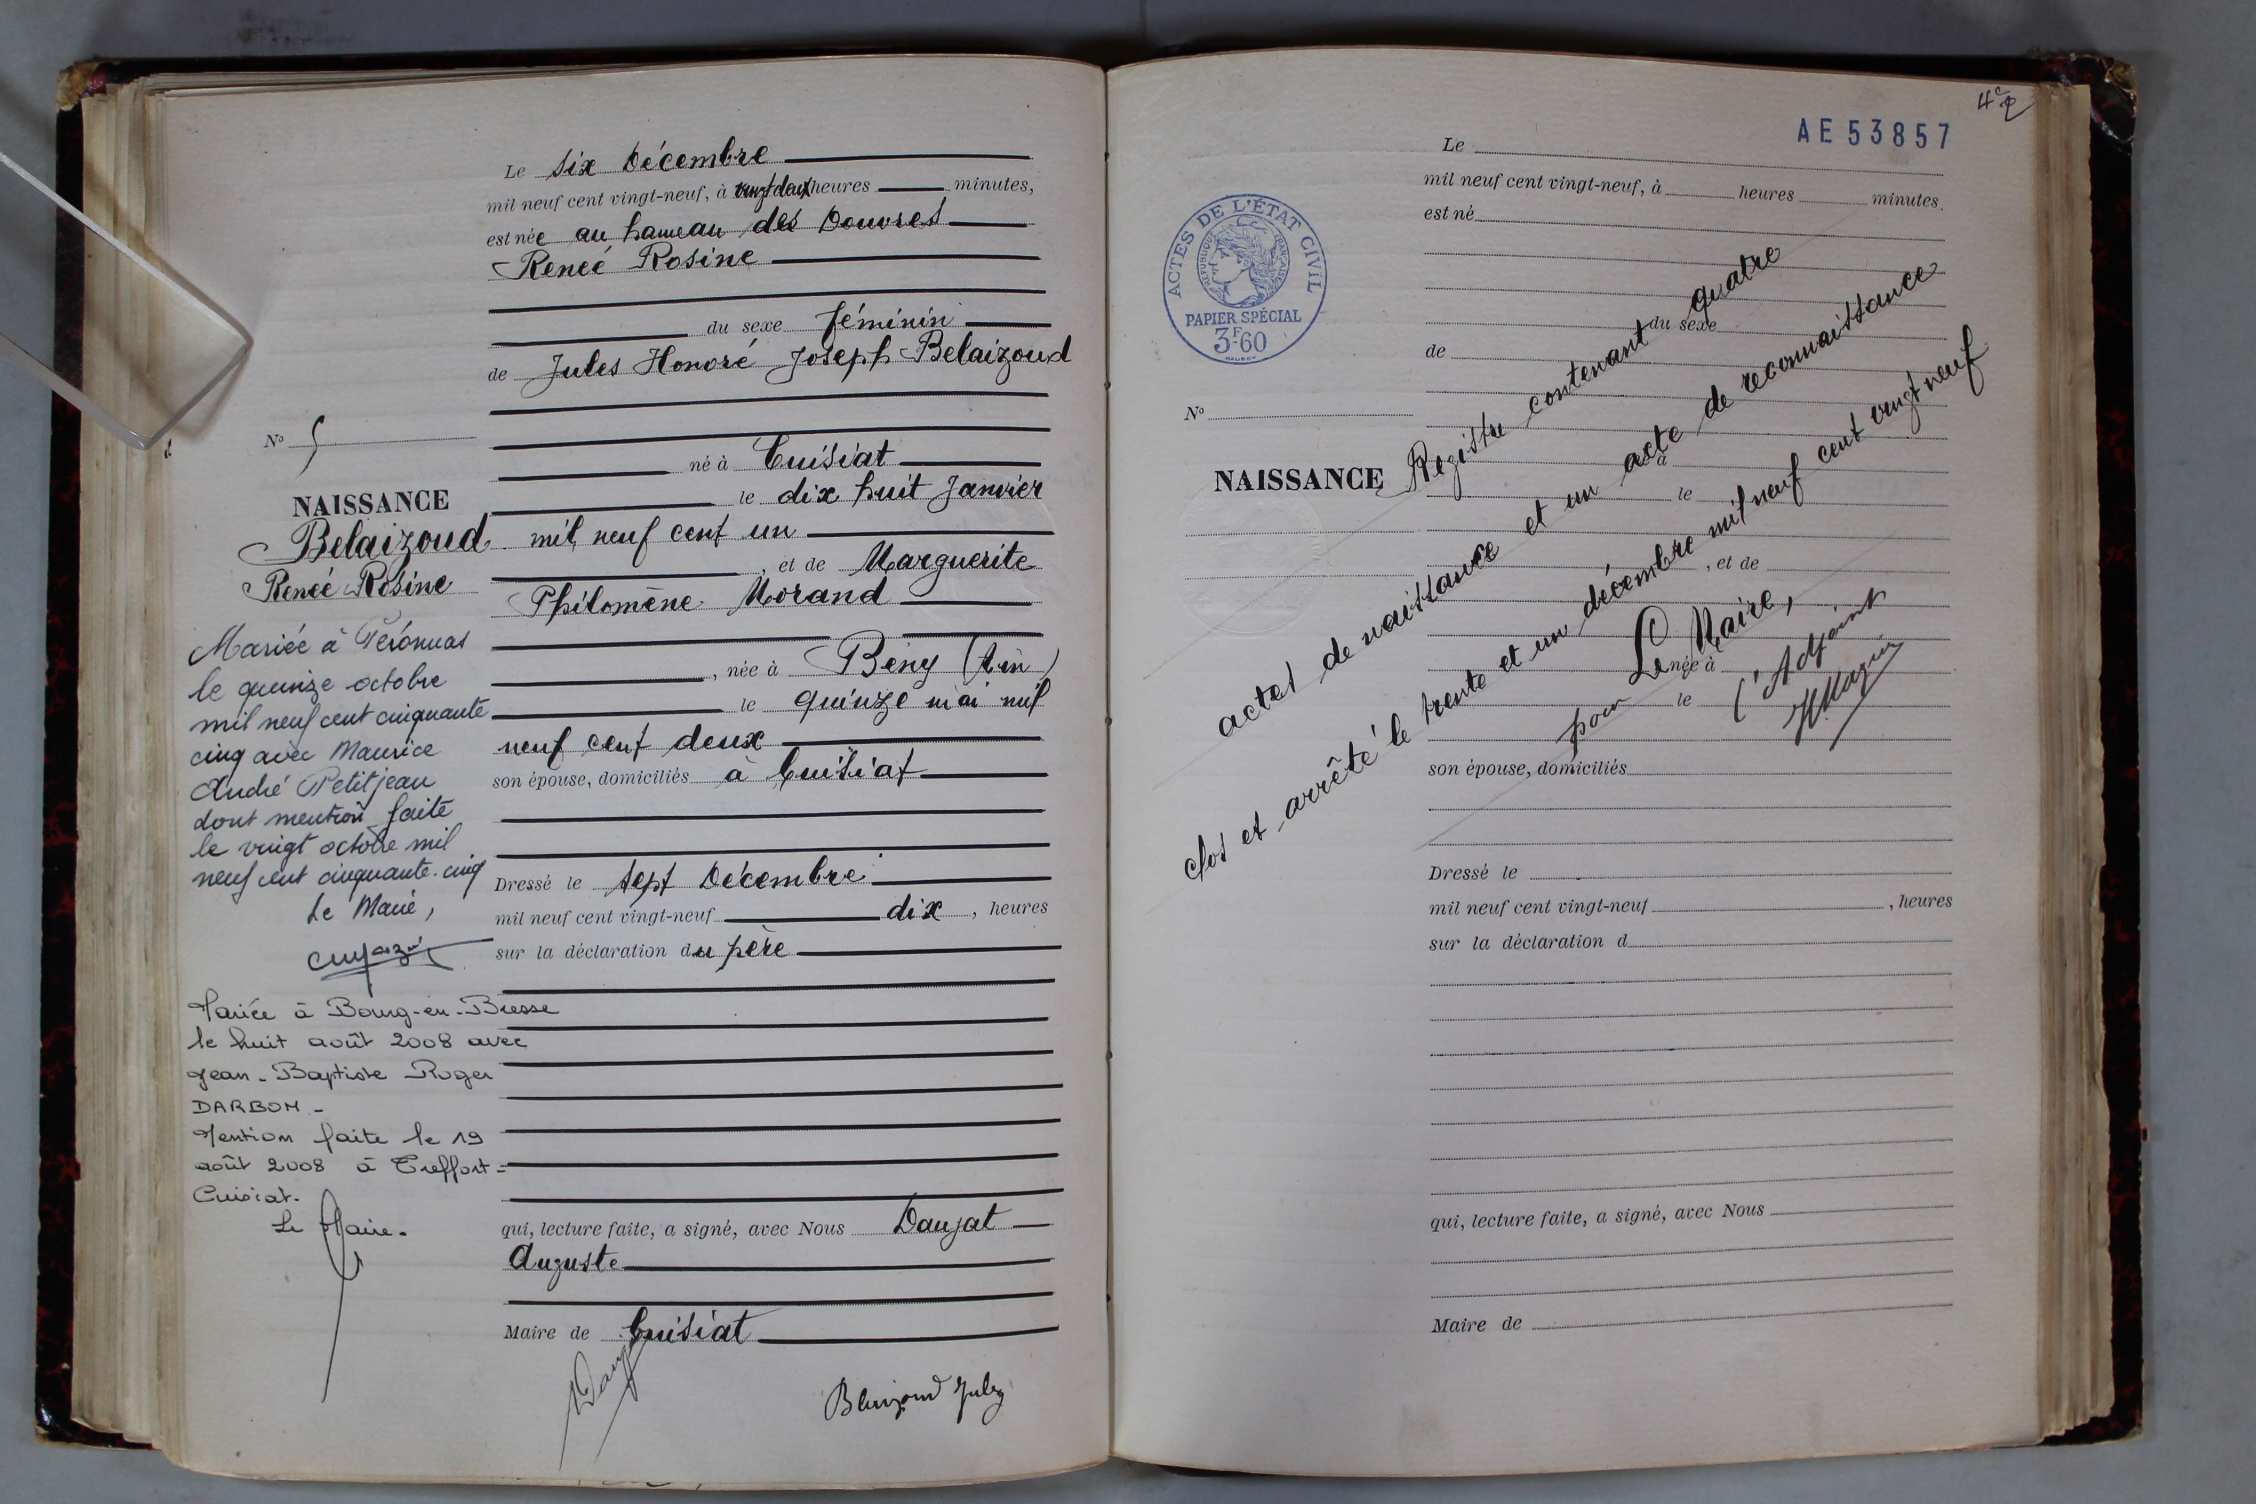 Le six Décembre
mil neuf cent vingt-neuf, à vingt deux heures minutes,
est née au hameau des Douvres
Reneé Rosine
du sexe féminin
de Jules Honoré Joseph Belaizoud
né à Cuisiat
le dix huit Janvier
mil neuf cent un
, et de Marguerite
Philomène Morand
, née à Bény (Ain)
le quinze mai mil
neuf cent deux
son épouse, domiciliés à Cuisiat
Dressé le sept Décembre
mil neuf cent vingt-neuf dix, heures
sur la déclaration du père
qui, lecture faite, a signé, avec Nous Daujat
Auguste
Maire de Cuisiat
Belaizoud Jules
No 5
NAISSANCE
Belaizoud
Reneé Rosine
Mariée à Péronnas
le quinze octobre
mil neuf cent cinquante
cinq avec Maurice
André Petitjean
dont mention faite
le vingt octobre mil
neuf cent cinquante-cinq
Le Maire,
Mariée à Bourg-en-Bresse
le huit août 2008 avec
Jean-Baptiste Roger
DARBON -
Mention faite le 19
août 2008 à Treffort=
Cuisiat.
Le Maire.
AE 53857
ACTES DE L'ÉTAT CIVIL
RÉPUBLIQUE FRANÇAISE
PAPIER SPÉCIAL
3F.60
Le
mil neuf cent vingt-neuf, à heures minutes.
est né
du sexe
de
No
NAISSANCE
à
le
, et de
née à
le
son épouse, domiciliés
Dressé le
mil neuf cent vingt-neuf , heures
sur la déclaration d
qui, lecture faite, a signé, avec Nous
Maire de
Registre contenant quatre
actes de naissance et un acte de reconnaissance
clos et arrêté le trente et un décembre mil neuf cent vingt neuf
Le Maire,
pour l'Adjoint